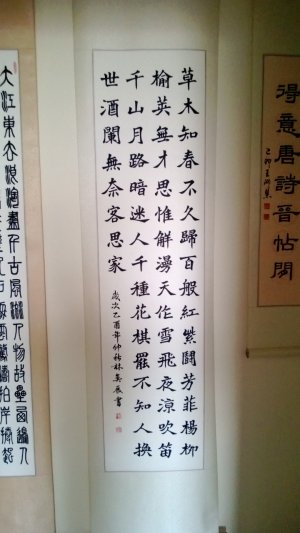 得意唐詩晉帖間
草木知春不久歸百般紅紫鬪芳菲楊柳
榆莢無才思惟解漫天作雪飛夜涼吹笛
千山月路暗迷人千種花棋罷不知人換
世酒闌無奈客思家
歲次乙酉年仲秋林
大江東去浪淘盡千古風流人物故壘西邊人
驚濤拍岸捲起